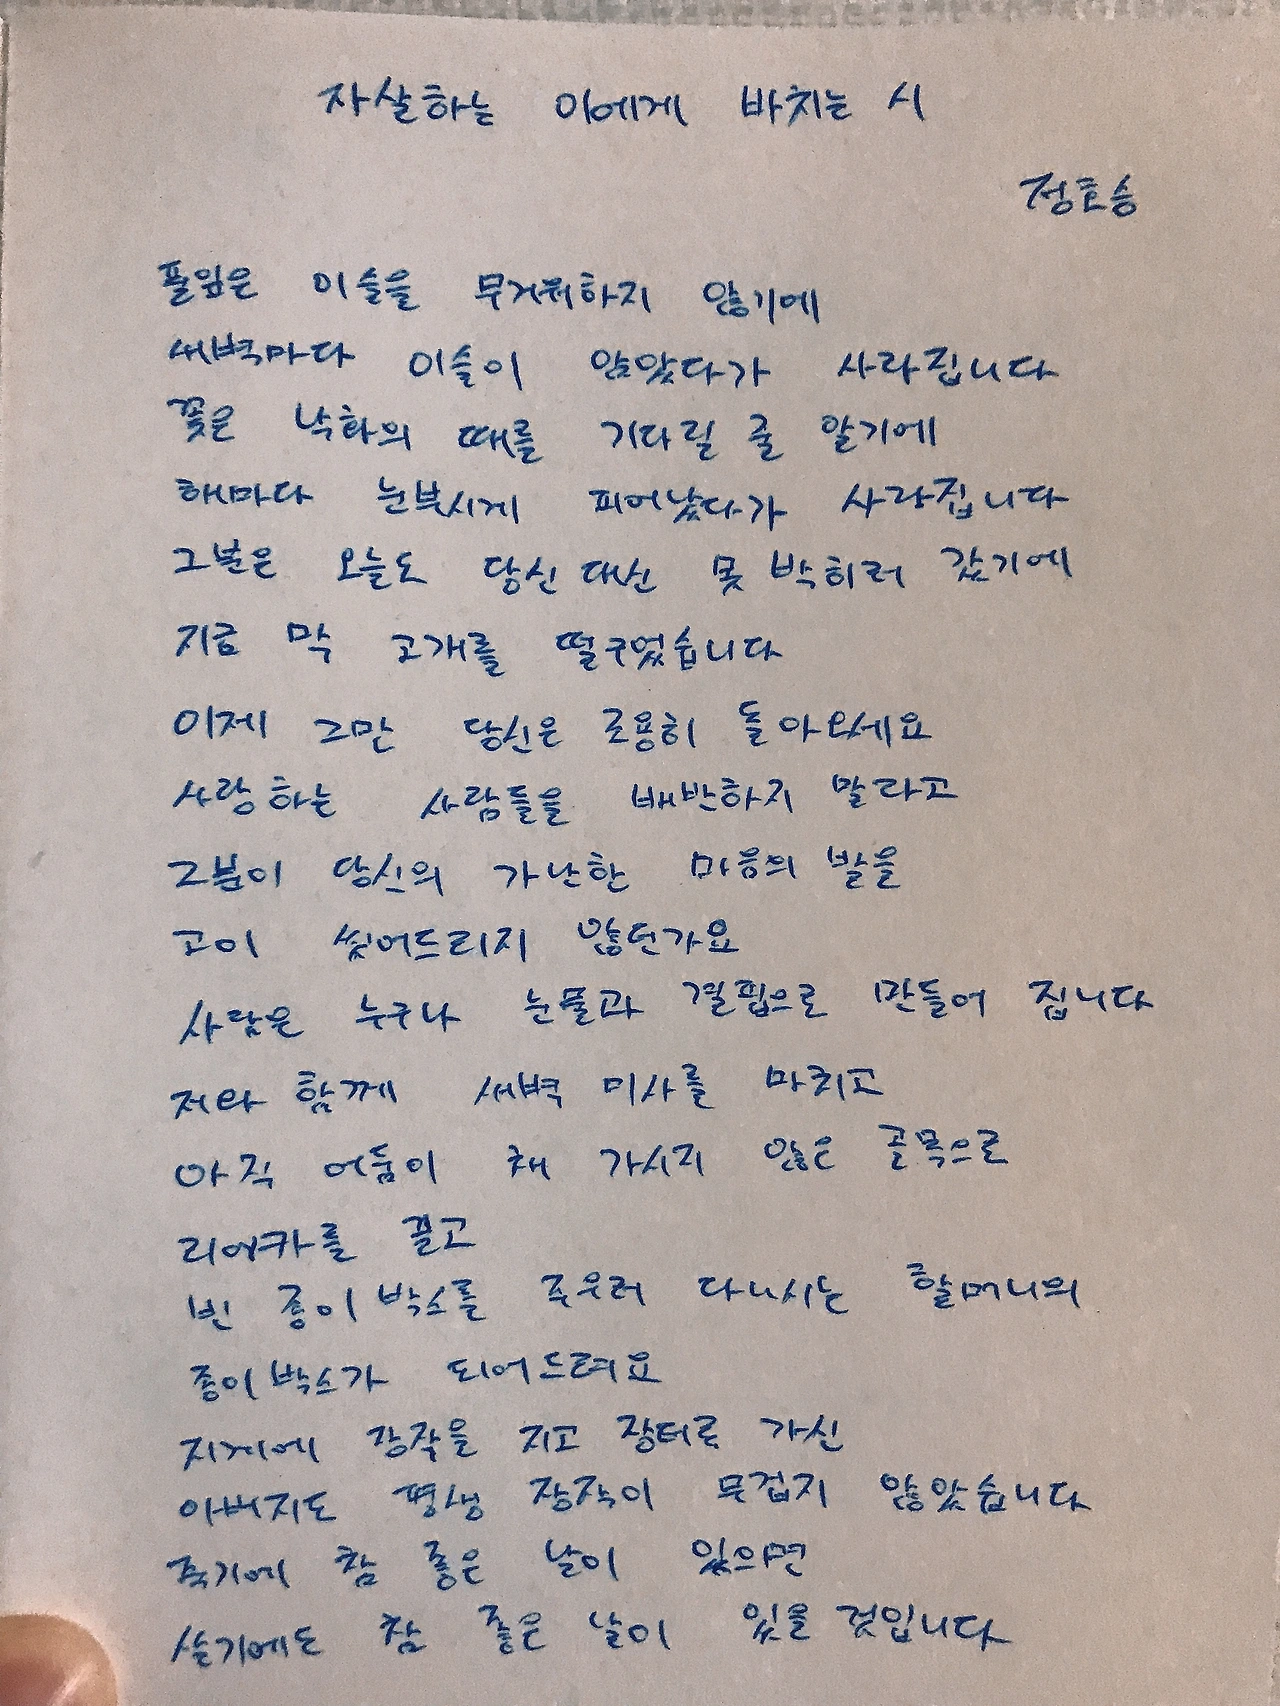 자살하는 이에게 바치는 시
정호승
풀잎은 이슬을 무거워하지 않기에
새벽마다 이슬이 앉았다가 사라집니다
꽃은 낙화의 때를 기다릴 줄 알기에
해마다 눈부시게 피어났다가 사라집니다
그분은 오늘도 당신 대신 못 박히러 갔기에
지금 막 고개를 떨구었습니다
이제 그만 당신은 조용히 돌아오세요
사랑하는 사람들을 배반하지 말라고
그분이 당신의 가난한 마음의 발을
고이 씻어드리지 않던가요
사람은 누구나 눈물과 결핍으로 만들어 집니다
저와 함께 새벽 미사를 마치고
아직 어둠이 채 가시지 않은 골목으로
리어카를 끌고
빈 종이박스를 주우러 다니시는 할머니의
종이박스가 되어드려요
지게에 장작을 지고 장터로 가신
아버지도 평생 장작이 무겁지 않았습니다
죽기에 참 좋은 날이 있으면
살기에도 참 좋은 날이 있을 것입니다